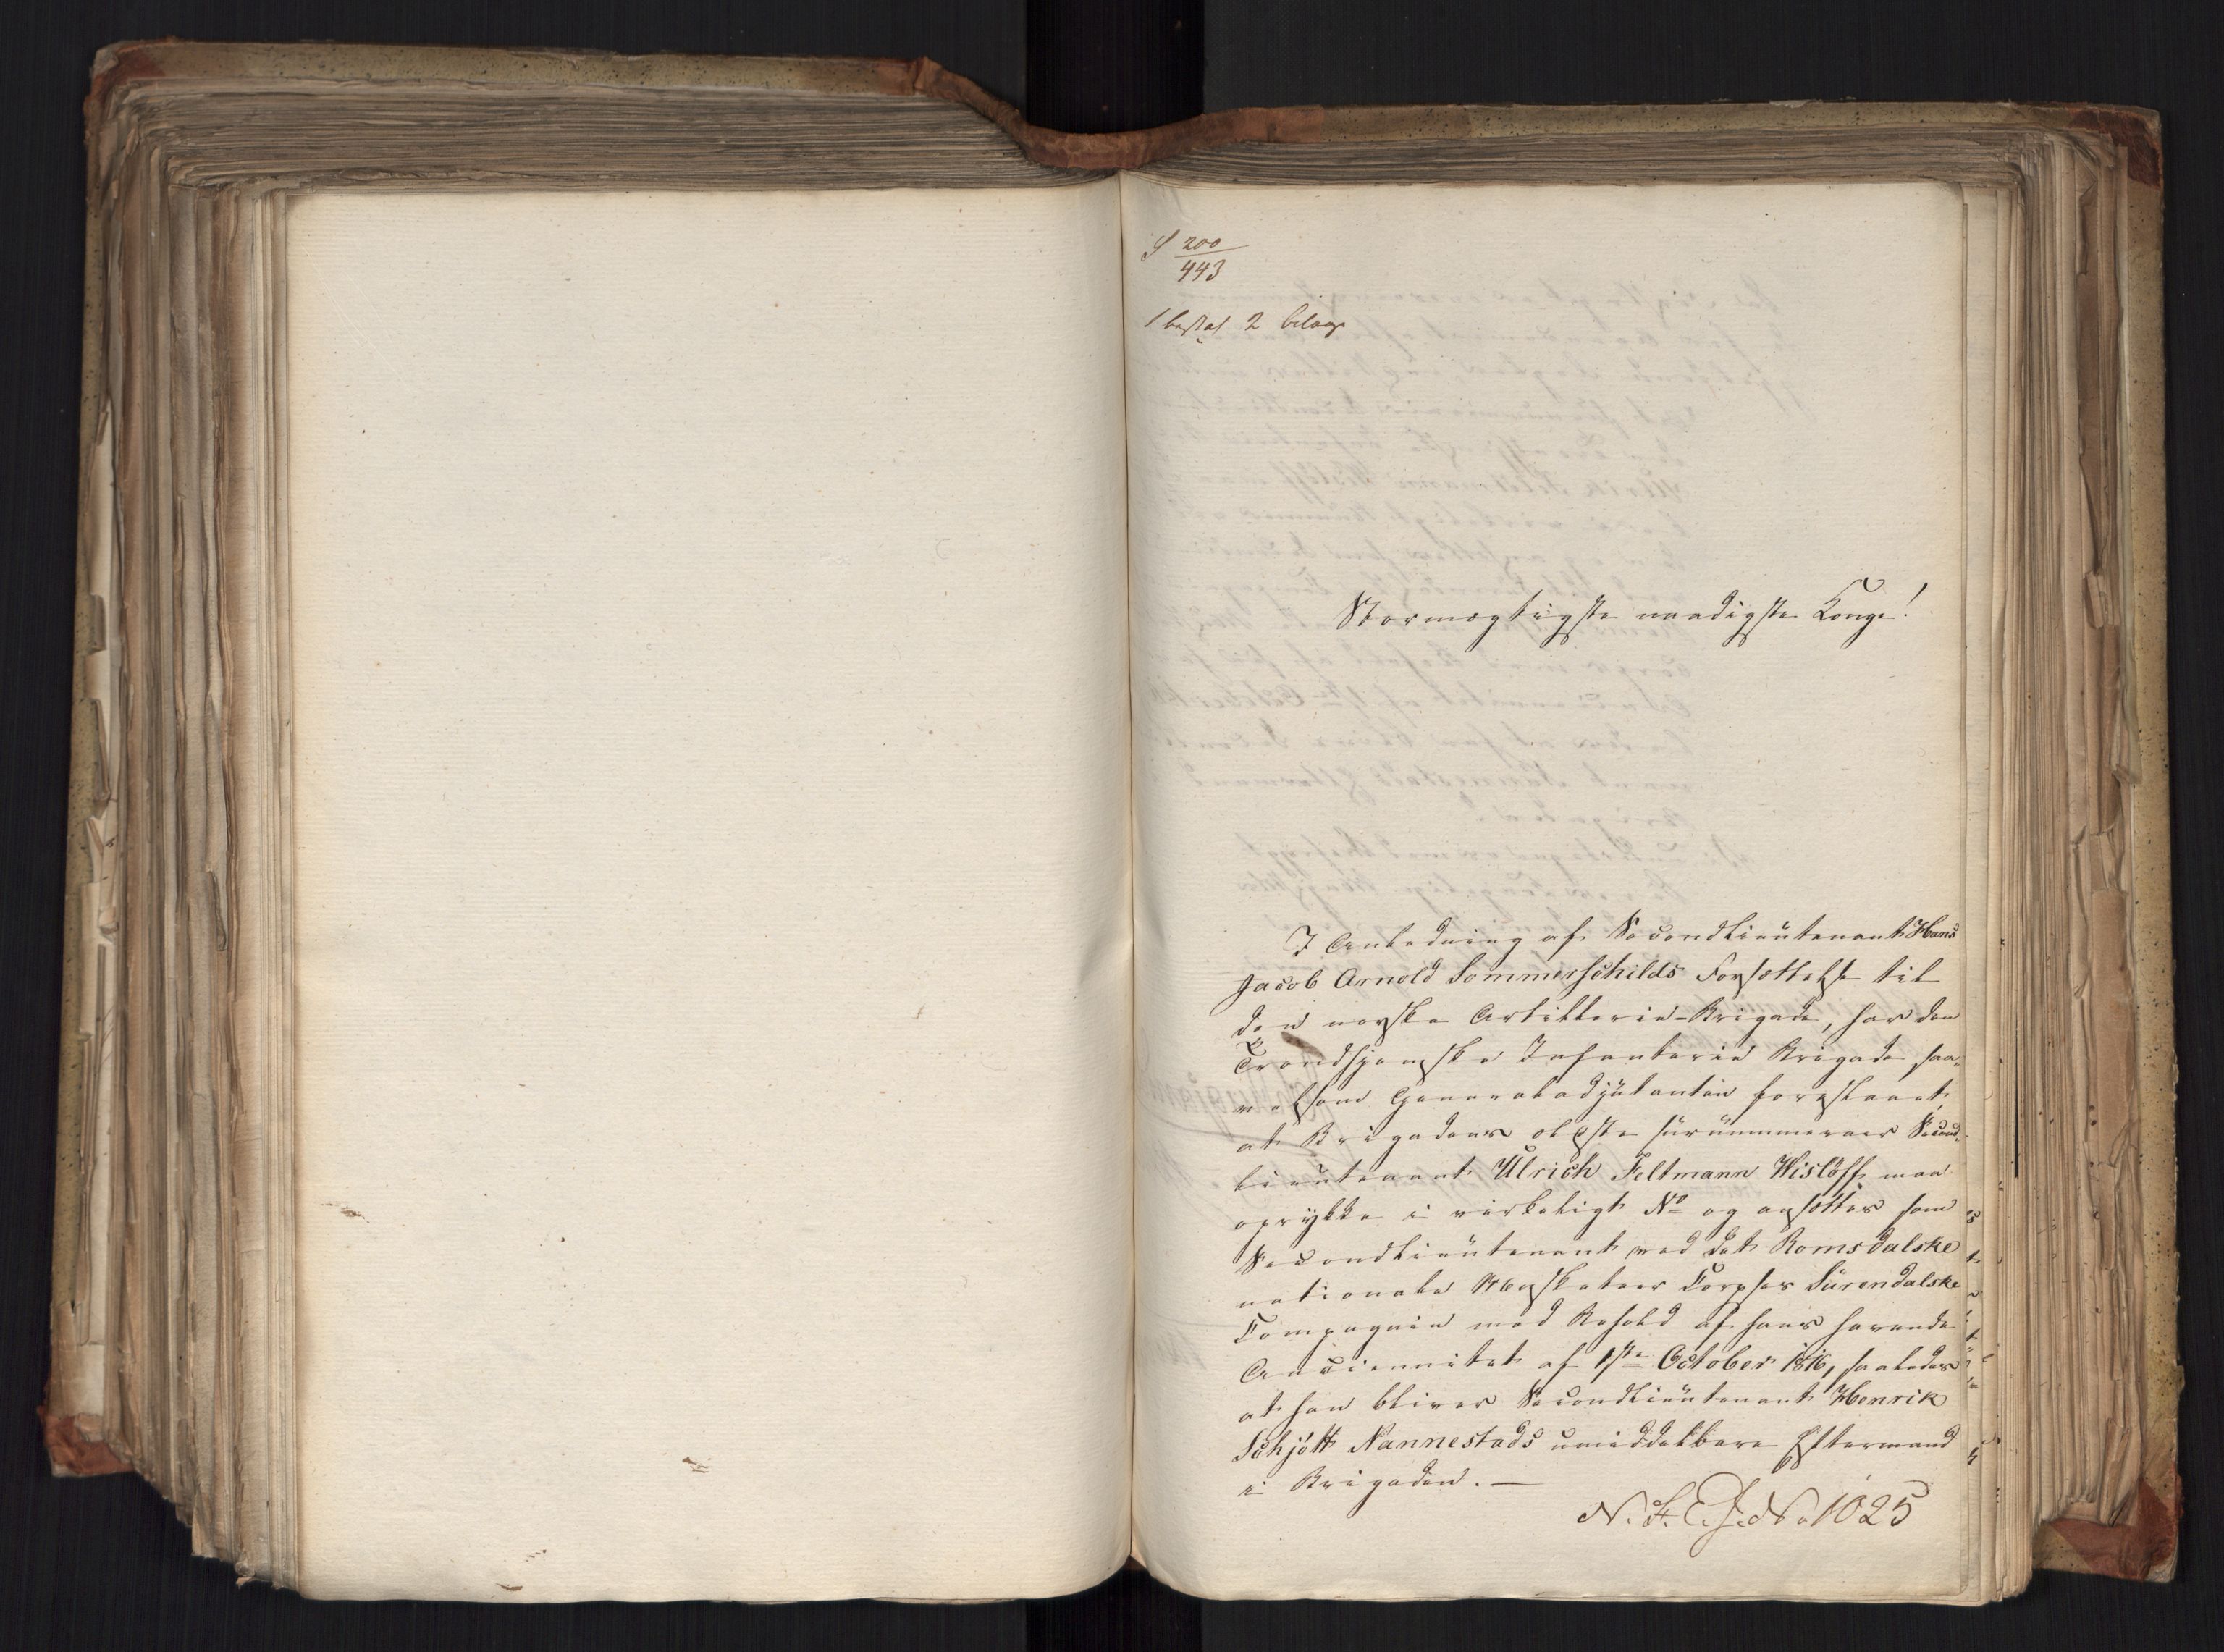 S 200
443
1 bestaf 2 bilage
Stormægtigste naadigste Konge!
I Anledning af Secondlieutenant Hans
Jacob Arnold Sommerschilds Forsættelse til
den norske Artillerie-Brigade, har den
Trondhjemske Infanterie Brigade, saa-
velsom Generaladjutanten forestaaet,
at Brigadens ældste surnummerair Second-
lieutenant Ulrich Feltmann Wislöff maa
oprykke i virkeligt No og ansættes som
Secondlieutenant ved det Romsdalske
nationale Musketeer Corpses Sürendalske
Compagnie med Behold af hans havende
Anciennitet af 1ste October 1816, saaledes
at han bliver Secondlieutenant Henrik
Schjött Nannestads umiddelbare Eftermand
i Brigaden. —
N. F. E. J. No 1025